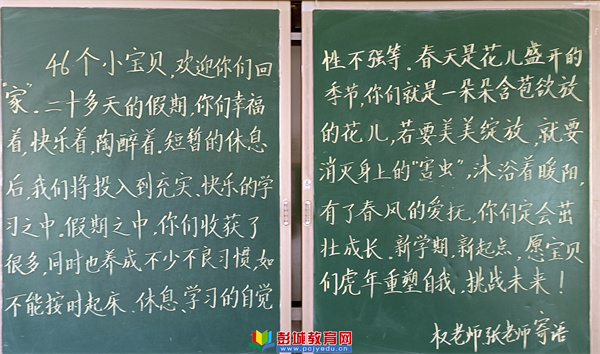 46个小宝贝,欢迎你们回
"家".二十多天的假期,你们幸福
着,快乐着,陶醉着.短暂的休息
后,我们将投入到充实、快乐的学
习之中.假期之中,你们收获了
很多,同时也养成不少不良习惯,如
不能按时起床、休息,学习的自觉
性不强等.春天是花儿盛开的
季节,你们就是一朵朵含苞欲放
的花儿,若要美美绽放,就要
消灭身上的"害虫",沐浴着暖阳,
有了春风的爱抚,你们定会茁
壮成长.新学期,新起点,愿宝贝
们虎年重塑自我,挑战未来!
权老师张老师寄语
彭城教育网
www.pcjyedu.cn